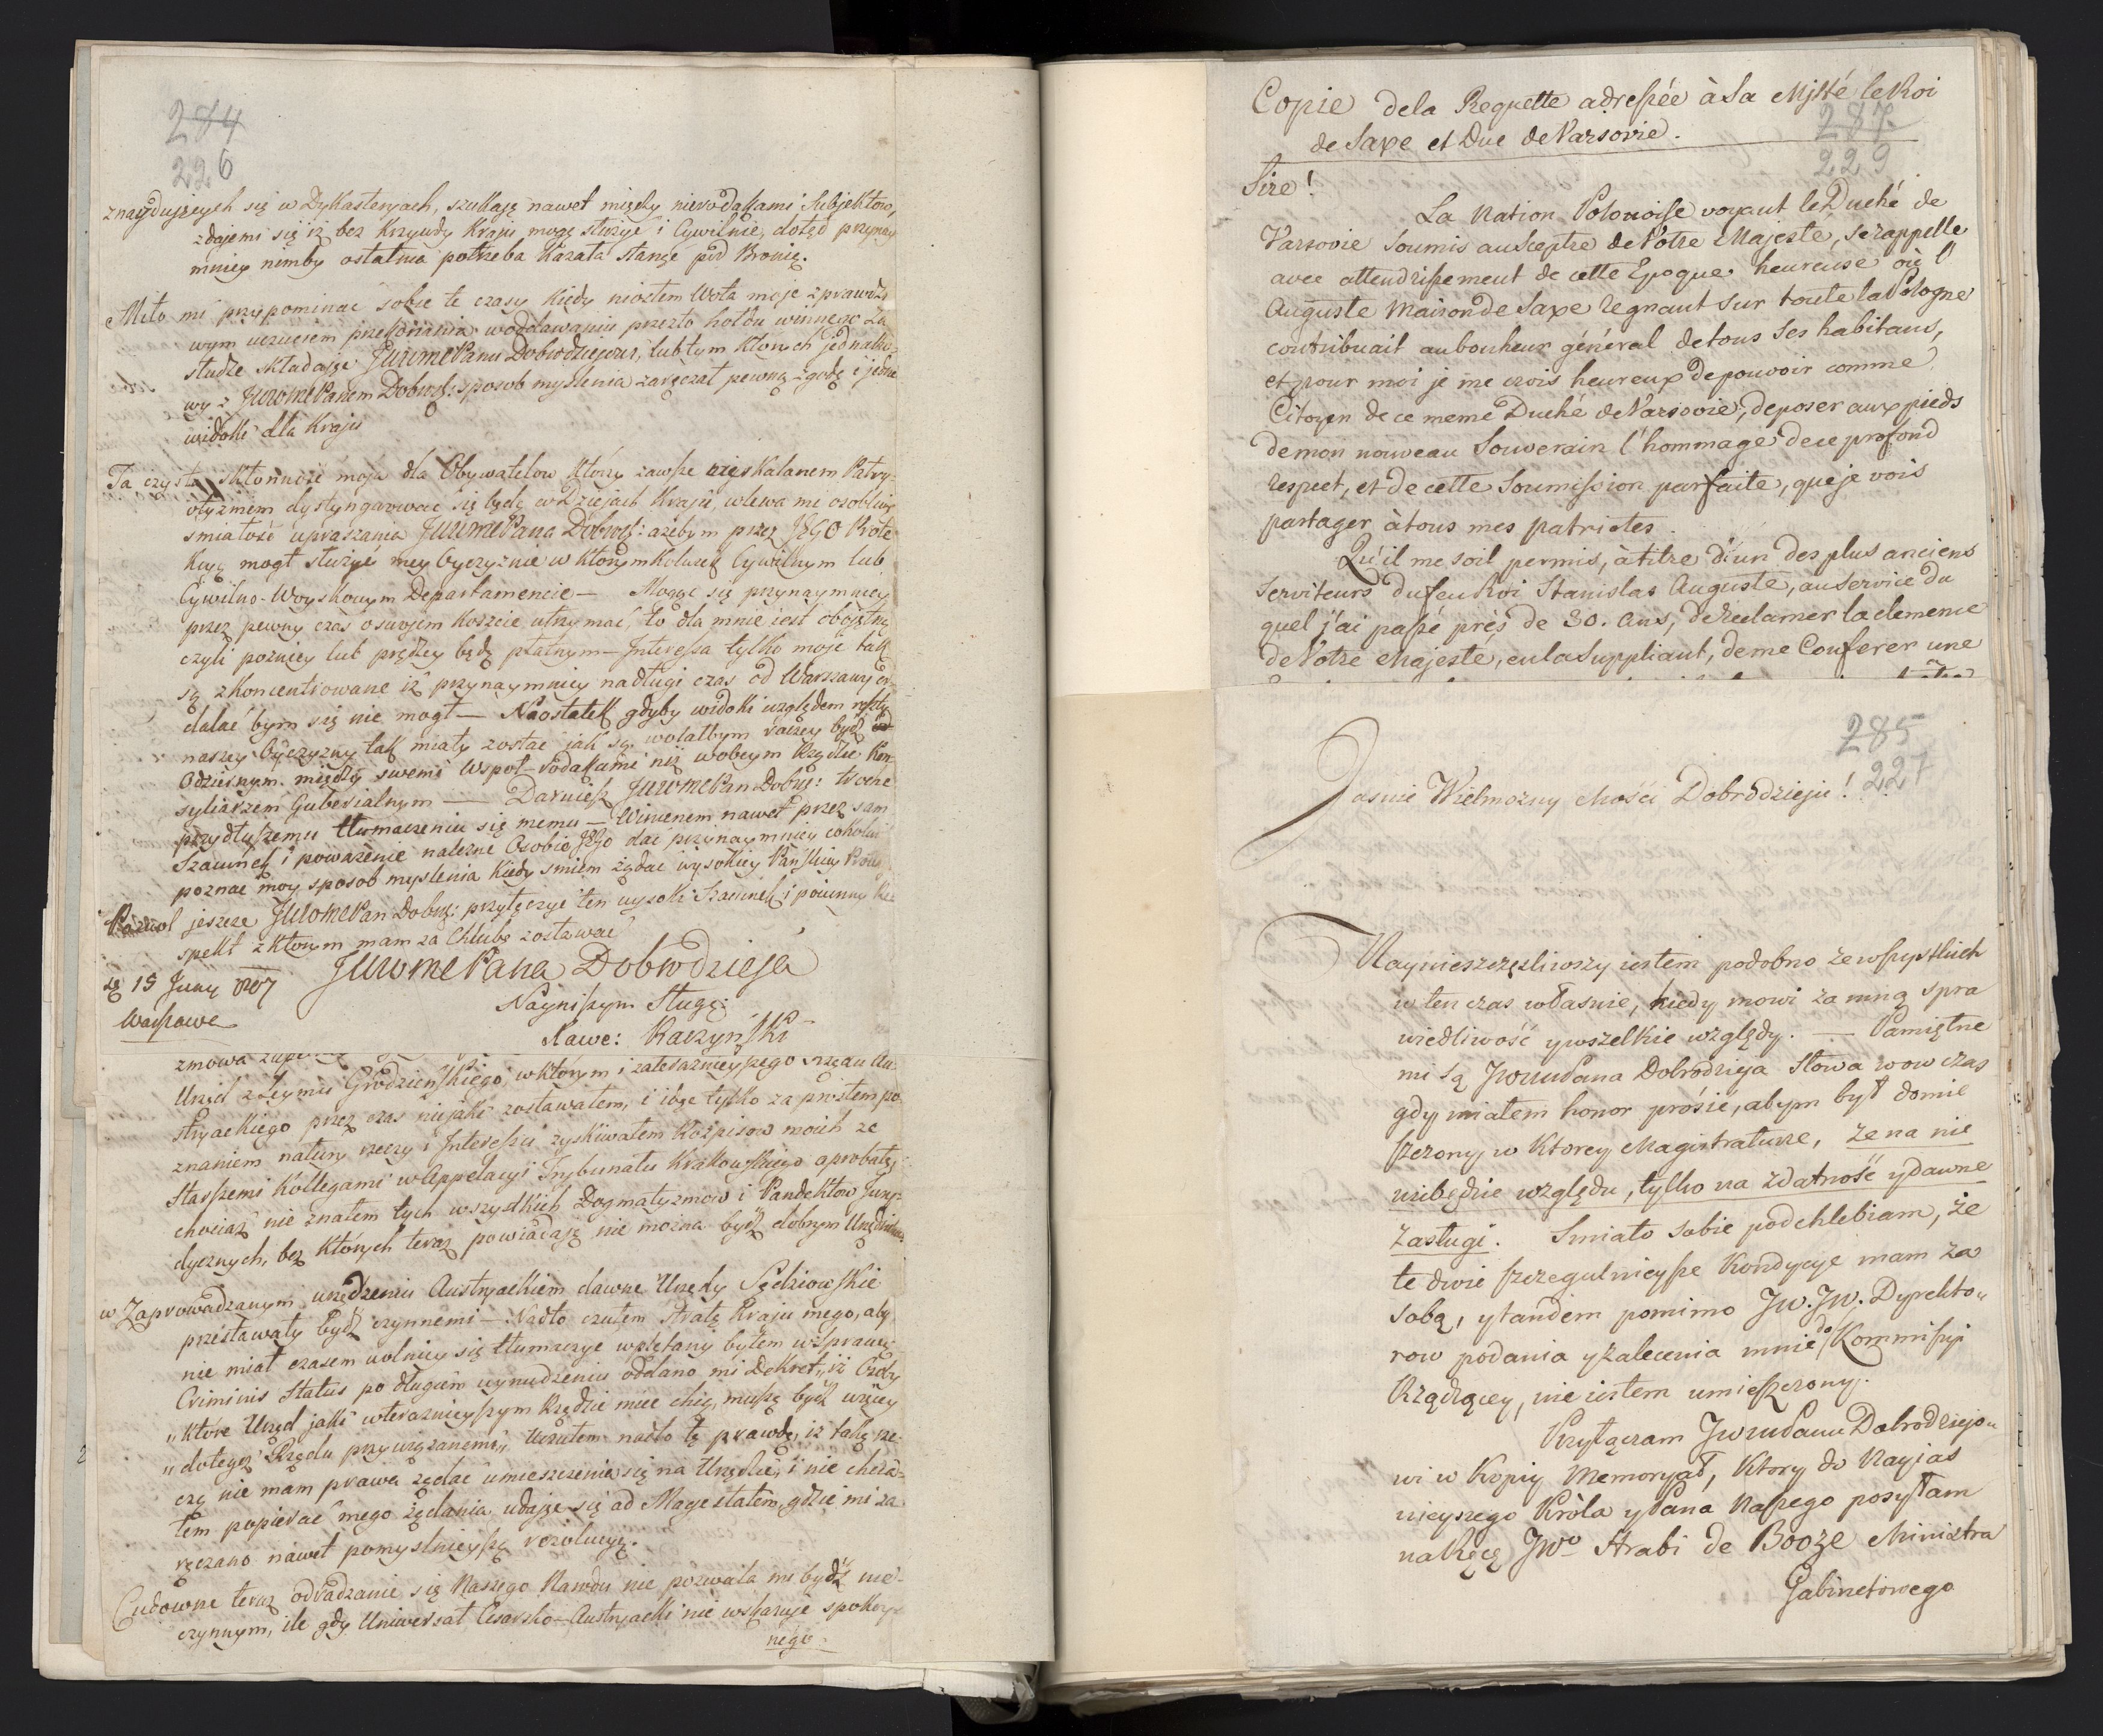 284
226
znayduiących się w Dykasteryach, szukają nawet między nierodakami Subjektow,
zdajemi się iż bez Krzywdy Kraju mogę służyć i Cywilnie, dotąd przynay
mniey nimby ostatnia potrzeba Kazała stanąć pod Bronią.
Miło mi przypominać sobie te czasy kiedy niosłem Wota moje z prawdzi
wym uczuciem przekonania woddawaniu przezto hołdu winnego Za
słudze składając JWWMePanu Dobrodziejowi, lub tym Których jednako
wy z JWWMePanem Dobrodz: sposob myslenia zaręczał pewną zgodę i jedne
widoki dla Kraju
Ta czysta skłonność moja dla Obywatelow Którzy zawsze nieskalanem Patry
otyzmem dystyngwować się będą w Dziejach Kraju, wlewa mi osobliwą
smiałość upraszania JWWMePana Dobrodz: ażebym przez JEGO Prote
Kcyą mogł służyć mey Oyczyznie w Którymkolwiek Cywilnym lub
Cywilno-Woyskowym Departamencie — Mogąc się przynaymniey
przez pewny czas o swojem Koszcie utrzymać, to dla mnie iest obojętną
czyli pozniey lub prędzey będę płatnym — Interessa tylko moje tak
są zkoncentrowane iż przynaymniey nadługi czas od Warszawy od
dalać bym się nie mogł — Naostatek gdyby widoki względem reszty
naszey Oyczyzny tak miały zostać jak są, wolałbym raczey bydź
Odziernym między swemi Wspoł-rodakami niż wobcym Rządzie Kon
syliarzem Gubernialnym — Daruiesz JWWMePan Dobrodz: troche
przydłuszemu tłumaczeniu się memu — Winienem nawet przez sam
Szacunek i poważenie należne Osobie JEGO dać przynaymniey cokolwi
poznać moy sposob myslenia Kiedy smiem żądać wysokiey Pańskiey
Pozwol jeszcze JWWMePan Dobrodz: przyłączyć ten wysoki Szacunek i powinny Re
spekt z Którym mam za Chlubę zostawać
JWWMe Pana Dobrodzieja
dą 15 Juny 807
Warszawe
Nayniszym Sługą:
Xawe: Raczyński
zmowa
Urząd z Seymu Grodzieńskiego, wktórym i zaterazniejszego rządu Au
stryackiego przez czas niejaki zostawałem, i idąc tylko za prostem po
znaniem natury rzeczy i Interessu zyskiwałem Rozpisow moich ze
Starszemi Kollegami w Appelacyi Trybunału Krakowskiego aprobatę,
chociaż nie znałem tych wszystkich Dogmatyzmow i Pandektow Jury
dycznych, bez których teraz powiadają nie można bydź dobrym Urzędnikiem.
w Zaprowadzanym urządzeniu Austryackiem dawne Urzędy Sędziowskie
przestawały bydź czynnemi — Nadto czułem stratę Kraju mego, aby
nie miał czasem wolniey się tłumaczyć wplątany byłem wsprawę
Criminis Status po długiem wynudzeniu oddano mi Dekret „iż Osoby
„które Urząd jaki wteraznieyszym Rządzie miec chcą, muszą bydź więcey
„dotegoż Rządu przywiązanemi„ Uczułem nadto tę prawdę, iż taką rze
czą nie mam prawa żądać umieszczenia się na Urzędzie, i nie chcia
łem popierać mego żądania, udając się ad Majestatem, gdzie mi za
ręczano nawet pomyslnieyszą rezolucyę.
Cudowne teraz odradzanie się Naszego Narodu nie pozwala mi bydź nie-
czynnym, ile gdy Uniwersał Cesarsko-Austryacki nie wskazuje spokoy
nego
Copie dela Requette adressée à Sa Mjsté le Roi
de Saxe et Duc de Varsovie.
287
229
Sire!
La Nation Polonoise voyant le Duché de
Varsovie soumis au Sceptre de Votre Majesté, se rappelle
avec attendrissement de cette Epoque heureuse où l'
Auguste Maison de Saxe regnant sur toute la Pologne
contribuait au bonheur général de tous ses habitans,
et pour moi je me crois heureux de pouvoir comme
Citoyen de ce meme Duché de Varsovie, deposer aux pieds
de mon nouveau Souverain l'hommage de ce profond
respect, et de cette Soumission parfaite, que je vois
partager à tous mes patriotes.
Qu'il me soit permis, à titre d'un des plus anciens
Serviteurs du feu Roi Stanislas Auguste, au Service du
quel j'ai passé près de 30. ans, de reclamer la clemence
de Votre Majesté, en la Suppliant, de me Conferer une
285
227
Jasnie Wielmozny Mości Dobrodzieju!
Naynieszczęsliwszy iestem podobno ze wszystkich
w ten czas własnie, kiedy mowi za mną spra
wiedliwość y wszelkie względy. — Pamiętne
mi są JWWMPana Dobrodzieja Słowa wow czas
gdy miałem honor prosić, abym był domie
szczony w Ktorey Magistraturze, że na nic
niebędzie względu, tylko na zdatność y dawne
zasługi. Smiało sobie podchlebiam, że
te dwie szczegulnieysze Kondycye mam za
sobą, y tandem pomimo JW. JW. Dyrekto„
row podania y zalecenia mnie do Kommissyi
Rządzącey, nie iestem umieszczony.
Przyłączam JWWMPanu Dobrodziejo„
wi w Kopiy Memoryał, Ktory do Nayias
nieyszego Króla y Pana Naszego posyłam
na Ręcę JWo Hrabi de Booze Ministra
Gabinetowego